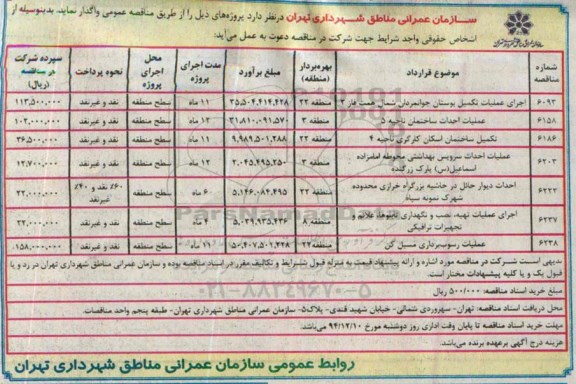 سازمان عمرانی مناطق شهرداری تهران درنظر دارد پروژه‌های ذیل را از طریق مناقصه عمومی واگذار نماید. بدینوسیله از
اشخاص حقوقی واجد شرایط جهت شرکت در مناقصه دعوت به عمل می‌آید:
شماره مناقصه | موضوع قرارداد | بهره‌بردار (منطقه) | مبلغ برآورد | مدت اجرای پروژه | محل اجرای پروژه | نحوه پرداخت | سپرده شرکت در مناقصه (ریال)
۶۰۹۳ | اجرای عملیات تکمیل بوستان جوانمردان شمال همت فاز ۲ | منطقه ۲۲ | ۳۵,۵۰۴,۴۱۴,۴۲۸ | ۱۱ ماه | سطح منطقه | نقد و غیرنقد | ۱۱۳,۵۰۰,۰۰۰
۶۱۵۸ | عملیات احداث ساختمان ناحیه ۵ | منطقه ۳ | ۳۱,۸۱۰,۰۹۱,۵۷۰ | ۱۲ ماه | سطح منطقه | نقد و غیرنقد | ۱۰۲,۰۰۰,۰۰۰
۶۱۸۶ | تکمیل ساختمان اسکان کارگری ناحیه ۴ | منطقه ۲۲ | ۹,۹۸۹,۵۰۱,۲۸۸ | ۱۱ ماه | سطح منطقه | نقد و غیرنقد | ۳۶,۵۰۰,۰۰۰
۶۲۰۳ | عملیات احداث سرویس بهداشتی محوطه امامزاده اسماعیل(س) پارک زرگنده | منطقه ۳ | ۲,۰۴۵,۴۹۵,۲۵۰ | ۱۲ ماه | سطح منطقه | نقد و غیرنقد | ۱۲,۷۰۰,۰۰۰
۶۲۲۲ | احداث دیوار حائل در حاشیه بزرگراه خرازی محدوده شهرک نمونه سپاه | منطقه ۲۲ | ۵,۱۴۶,۰۸۴,۴۹۵ | ۶ ماه | سطح منطقه | ۶۰٪ نقد و ۴۰٪ غیرنقد | ۲۲,۰۰۰,۰۰۰
۶۲۳۷ | اجرای عملیات تهیه، نصب و نگهداری تابلوها، علایم و تجهیزات ترافیکی | منطقه ۸ | ۵,۰۲۹,۹۳۵,۴۳۶ | ۴ ماه | سطح منطقه | نقد و غیرنقد | ۲۲,۰۰۰,۰۰۰
۶۲۳۸ | عملیات رسوب‌برداری مسیل کن | منطقه ۲۲ | ۵۰,۴۰۷,۵۰۲,۴۲۸ | ۱۱ ماه | سطح منطقه | نقد و غیرنقد | ۱۵۸,۰۰۰,۰۰۰
بدیهی است شرکت در مناقصه مورد اشاره و ارائه پیشنهاد قیمت به منزله قبول شرایط و تکالیف مقرر در اسناد مناقصه بوده و سازمان عمرانی مناطق شهرداری تهران در رد و یا
قبول یک و یا کلیه پیشنهادات مختار است.
مبلغ خرید اسناد مناقصه: ۵۰۰/۰۰۰ ریال
محل دریافت اسناد مناقصه: تهران- سهروردی شمالی- خیابان شهید قندی- پلاک۵- سازمان عمرانی مناطق شهرداری تهران- طبقه پنجم واحد مناقصات.
مهلت خرید اسناد مناقصه تا پایان وقت اداری روز دوشنبه مورخ ۹۴/۱۲/۱۰ می‌باشد.
هزینه درج آگهی برعهده برنده می‌باشد.
روابط عمومی سازمان عمرانی مناطق شهرداری تهران
ParsNamadData
۰۲۱-۸۸۳۴۹۶۷۰-۵